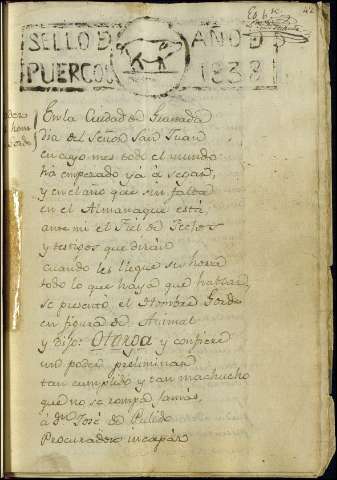 42
SELLO D. AÑO D
PUERCOS 1838
En la Ciudad de Granada
Dia del Señor San Juan
en cuyo mes todo el mundo
ha empezado ya á segar,
y en el año que sin falta
en el Almanaque está,
ante mi el Fiel de Fechos
y testigos que dirán
cuando les llegue su hora
todo lo que haya que hablar,
se presentó el Hombre Gordo
en figura de Animal
y dijo: Otorga y confiere
un poder preliminar
tan cumplido y tan machucho
que no se rompa jamás,
á Dn. José de Pulido
Procurador incapáz